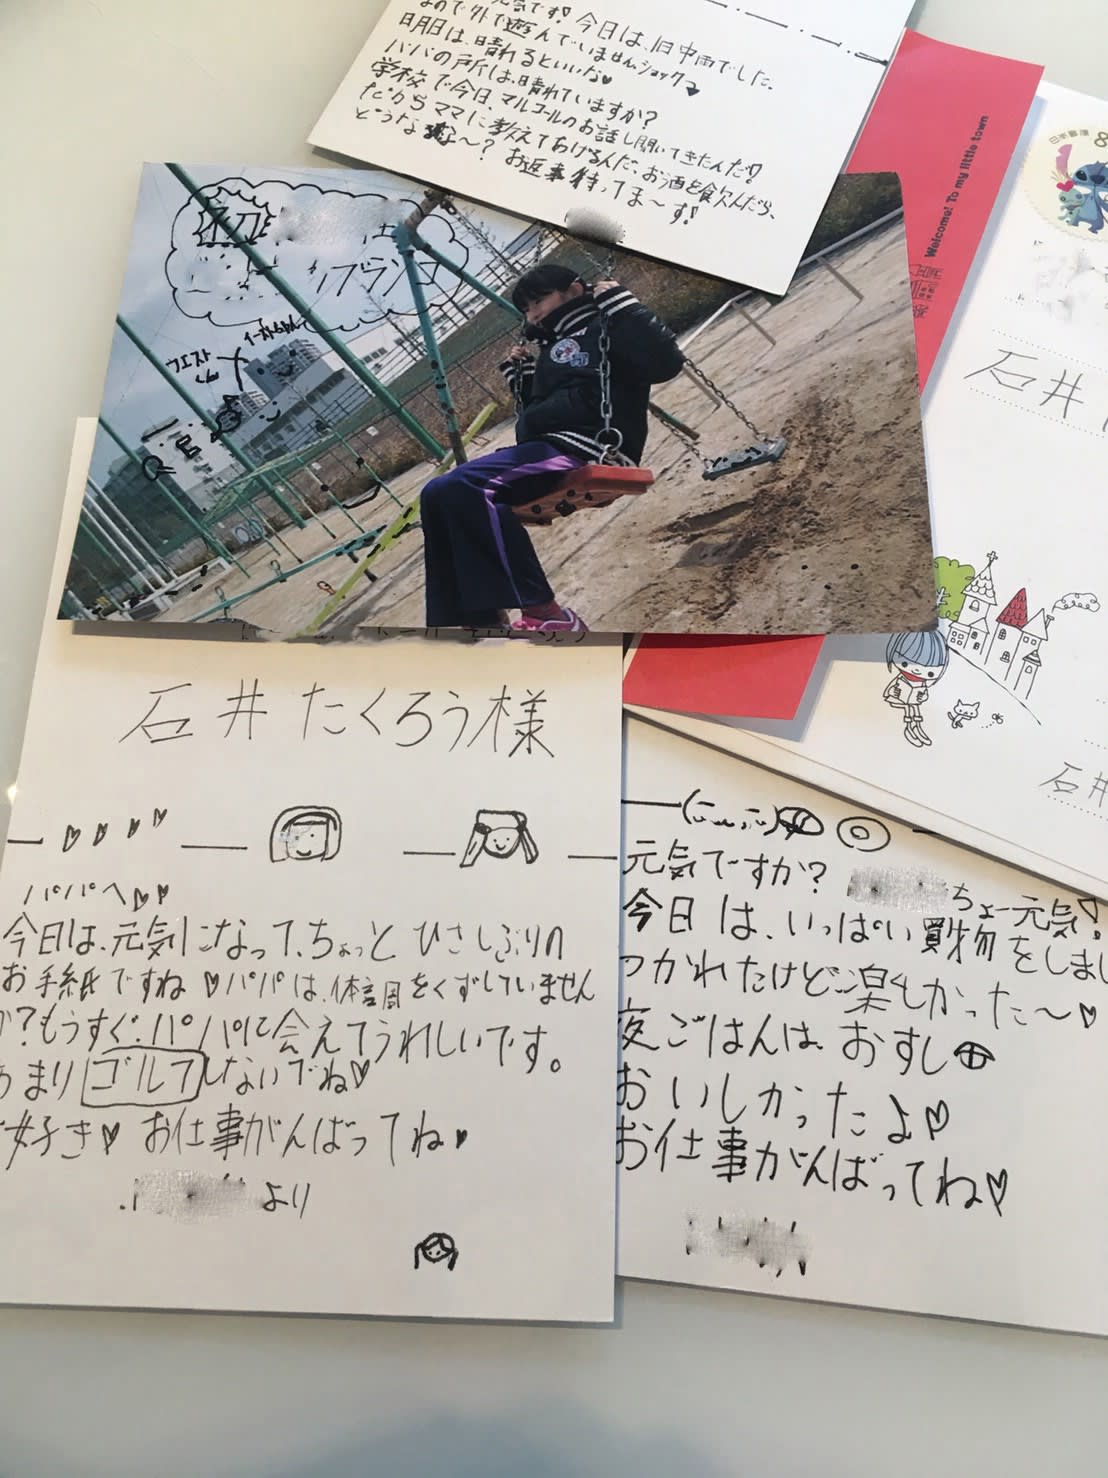 元気です！今日は、一日中雨でした。
なので外で遊んでいません。ショック
明日は、晴れるといいな♥
パパの所は、晴れていますか？
学校で今日、アルコールのお話し聞いてきたんだ！
だからママに教えてあげるんだ、お酒を飲んだら、
どうなるな〜？お返事待ってま〜す！
日本郵便 8
Welcome! To my little town
石井
石井
初
ブランコ
ウエスト
イーストちゃん
石井たくろう様
パパへ♡♥
今日は、元気になって、ちょっとひさしぶりの
お手紙ですね♡パパは、体調をくずしていません
か？もうすぐパパに会えてうれしいです。
あまりゴルフしないでね♡
好き♥お仕事がんばってね♥
より
元気ですか？ ちょー元気！
今日は、いっぱい買物をしまし
つかれたけど楽しかった〜♥
夜ごはんは、おすし
おいしかったよ♡
お仕事がんばってね♡